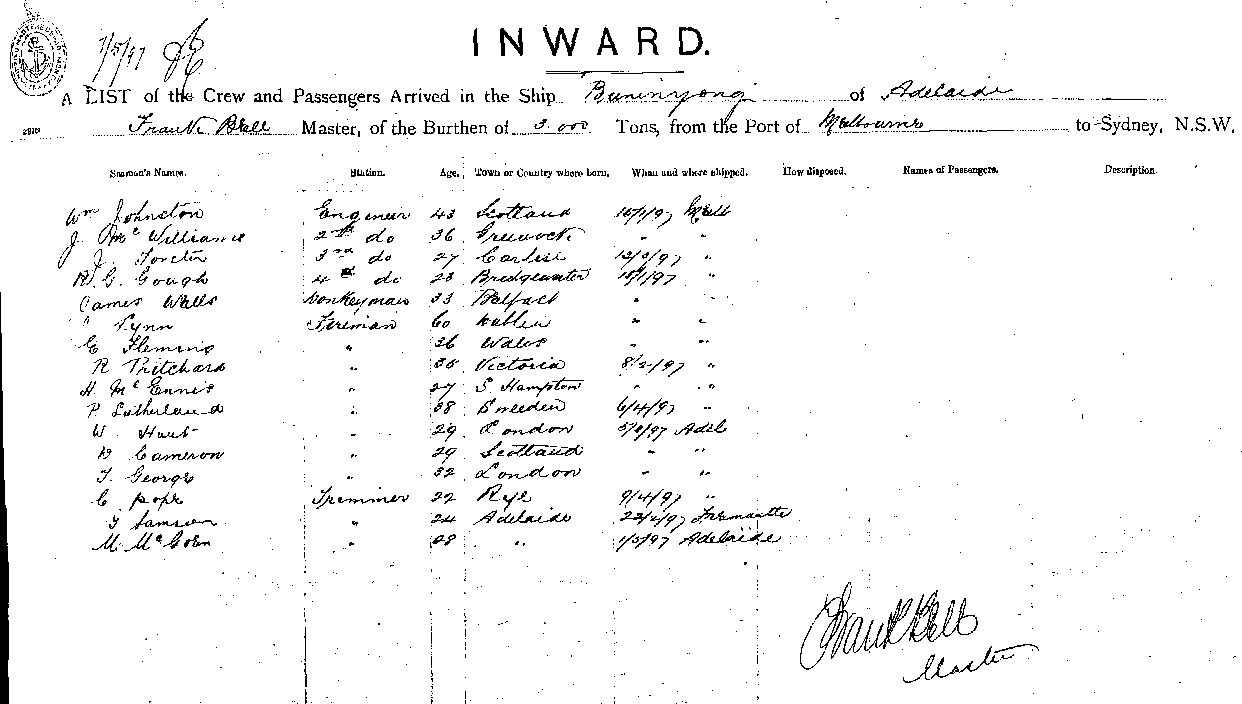 7/5/97
INWARD.
A LIST of the Crew and Passengers Arrived in the Ship Buninyong of Adelaide
Frank Bell Master, of the Burthen of 3.000 Tons, from the Port of Melbourne to Sydney, N.S.W.
Seaman's Names. Station. Age. Town or Country where born. When and where shipped. How disposed. Names of Passengers. Description.
Wm Johnston Engineer 43 Scotland Melb
J. McWilliams 2nd do 36 Greenock " "
J. 3rd do 27 Carlisl "
R. G. Gough 4th do 28 Bridgewater "
James Walls Donkeyman 33 Belfast " "
" Lynn Fireman 60 Dublin " "
E Fleming " 26 Wales " "
R Pritchard " Victoria 8/2/97 "
H. McEnnis " 27 S. Hampton " "
P. Sutherland " 38 Sweeden 6/4/97 "
W. Hunt " 29 London Adel
D Cameron " 29 Scotland " "
T. George " 32 London " "
C Pope Tremmer 22 Rye 9/4/97 "
Samson " 24 Adelaide Fremantle
M. " 28 " Adelaide
Frank Bell
Master